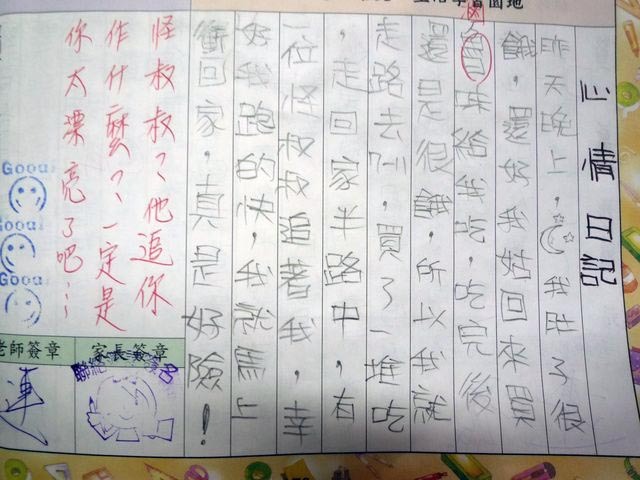 學習園地
心情日記
昨天晚上,我肚子很
餓,還好我姑回來買
宵
味給我吃,吃完後
還是很餓,所以我就
走路去7-11,買了一堆吃
,走回家半路中,有
一位怪叔叔追著我,幸
好我跑的快,我就馬上
衝回家,真是好險!
怪叔叔?他追你
作什麼?一定是
你太漂亮了吧…
Good
Good
Good
家長簽章
老師簽章
連